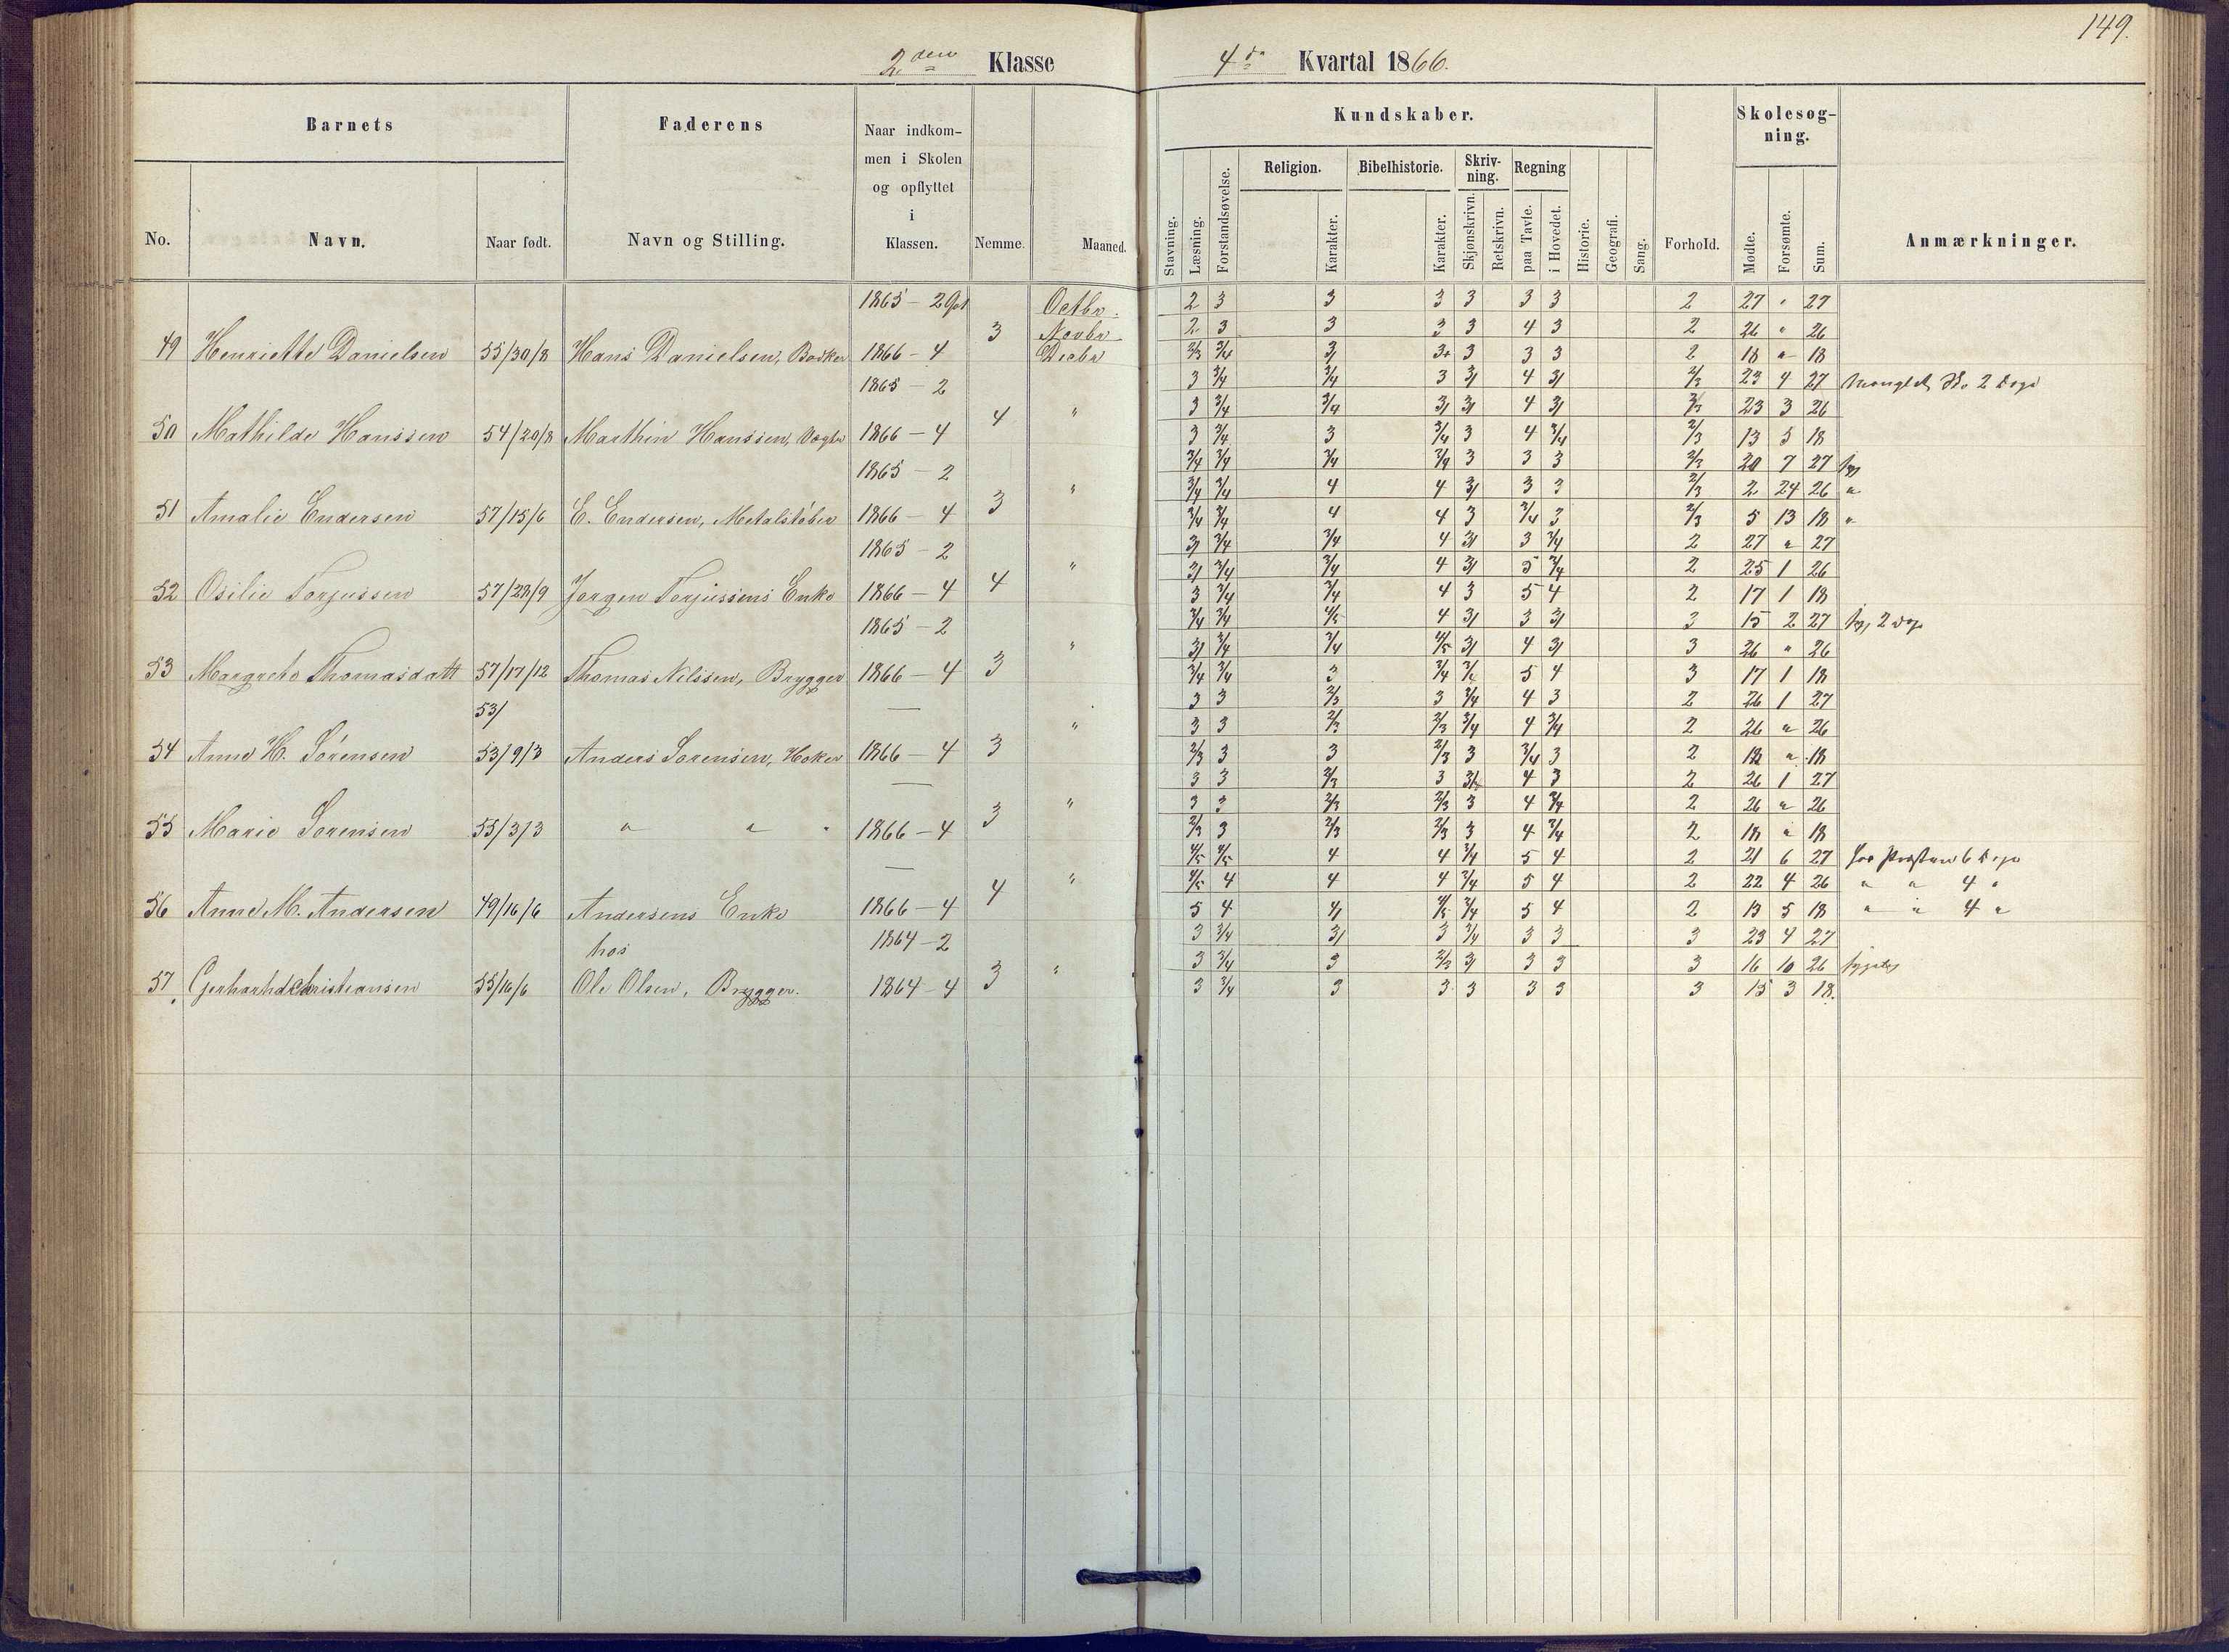 149.
2den Klasse
4de Kvartal 1866.
Barnets
Faderens
Naar indkommen i Skolen og opflyttet i Klassen.
Kundskaber.
Skolesøgning.
Religion.
Bibelhistorie.
Skrivning.
Regning
No.
Navn.
Naar født.
Navn og Stilling.
Nemme.
Maaned.
Stavning.
Læsning.
Forstandsøvelse.
Karakter.
Karakter.
Skjønskrivn.
Retskrivn.
paa Tavle.
i Hovedet.
Historie.
Geografi.
Sang.
Forhold.
Mødte.
Forsømte.
Sum.
Anmærkninger.
1865 - 2 Octbr. 2 3 3 3 3 3 3 2 27 " 27
3 Novbr 2 3 3 3 3 4 3 2 26 " 26
49 Henriette Danielsen 55/30/8 Hans Danielsen, Bødker 1866 - 4 Decbr 2/3 3/4 3/ 3+ 3 3 3 2 18 " 18
1865 - 2 3 3/4 3/4 3 3/ 4 3/ 2/3 23 4 27
4 " 3 3/4 3/4 3/ 3/ 4 3/ 2/3 23 3 26
50 Mathilde Hanssen 54/20/8 Marthin Hanssen, Vægter 1866 - 4 3 3/4 3 3/4 3 4 3/4 2/3 13 5 18
1865 - 2 3/4 3/4 3/4 3/4 3 3 3 2/3 20 7 27 syg
3 " 3/4 3/4 4 4 3/ 3 3 2/3 2 24 26 "
51 Amalie Endersen 57/15/6 E. Endersen, Metalstøber 1866 - 4 3/4 3/4 4 4 3 3/4 3 2/3 5 13 18 "
1865 - 2 3/ 3/4 3/4 4 3/ 3 3/4 2 27 " 27
4 " 3/ 3/4 3/4 4 3/ 5 3/4 2 25 1 26
52 Osilie Torjussen 57/23/9 Jørgen Torjussens Enke 1866 - 4 3 3/4 3/4 4 3 5 4 2 17 1 18
1865 - 2 3/4 3/4 4/5 4 3/ 3 3/ 3 15 2 27
3 " 3/ 3/4 3/4 4/5 3/ 4 3/ 3 26 " 26
53 Margrete Thomasdatt 57/17/12 Thomas Nilssen, Brygger 1866 - 4 3/4 3/4 3 3/4 3/4 5 4 3 17 1 18
53/ — 3 3 2/3 3 3/4 4 3 2 26 1 27
3 " 3 3 2/3 2/3 3/4 4 3/4 2 26 " 26
54 Anne H. Sørensen 53/9/3 Anders Sørensen, Høker 1866 - 4 2/3 3 3 2/3 3 3/4 3 2 18 " 18
— 3 3 2/3 3 3/4 4 3 2 26 1 27
3 " 3 3 2/3 2/3 3 4 3/4 2 26 " 26
55 Marie Sørensen 55/3/3 " " " 1866 - 4 2/3 3 2/3 2/3 3 4 3/4 2 18 " 18
— 4/5 4/5 4 4 3/4 5 4 2 21 6 27 hos Præsten 6 Dage
4 " 4/5 4 4 4 3/4 5 4 2 22 4 26 " " 4 "
56 Anne M. Andersen 49/16/6 Andersens Enke 1866 - 4 5 4 4/ 4/5 3/4 5 4 2 13 5 18 " " 4 "
hos 1864 - 2 3 3/4 3/ 3 3/4 3 3 3 23 4 27
3 " 3 3/4 3 2/3 3/ 3 3 3 16 10 26
57 Gerhard Christiansen 55/16/6 Ole Olsen, Brygger. 1864 - 4 3 3/4 3 3 3 3 3 3 15 3 18.